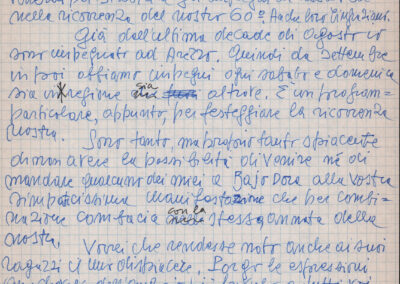 nella ricorrenza del nostro 60°
Già dall'ultima decade di Agosto io
sono impegnato ad Arezzo. Quindi da Settembre
in poi abbiamo impegni ogni sabato e domenica
sia in regione già altrove. È un program-
particolare, appunto, per festeggiare la ricorrenza
nostra.
Sono tanto, ma proprio tanto spiacente
di non avere la possibilità di venire nè di
mandare qualcuno dei miei a Bajo Dora alla vostra
simpaticissima manifestazione che per combi-
nazione combacia con la stessa annata della
nostra.
Vorrei che rendesse noto anche ai suoi
ragazzi il mio dispiacere. Porgo le espressioni